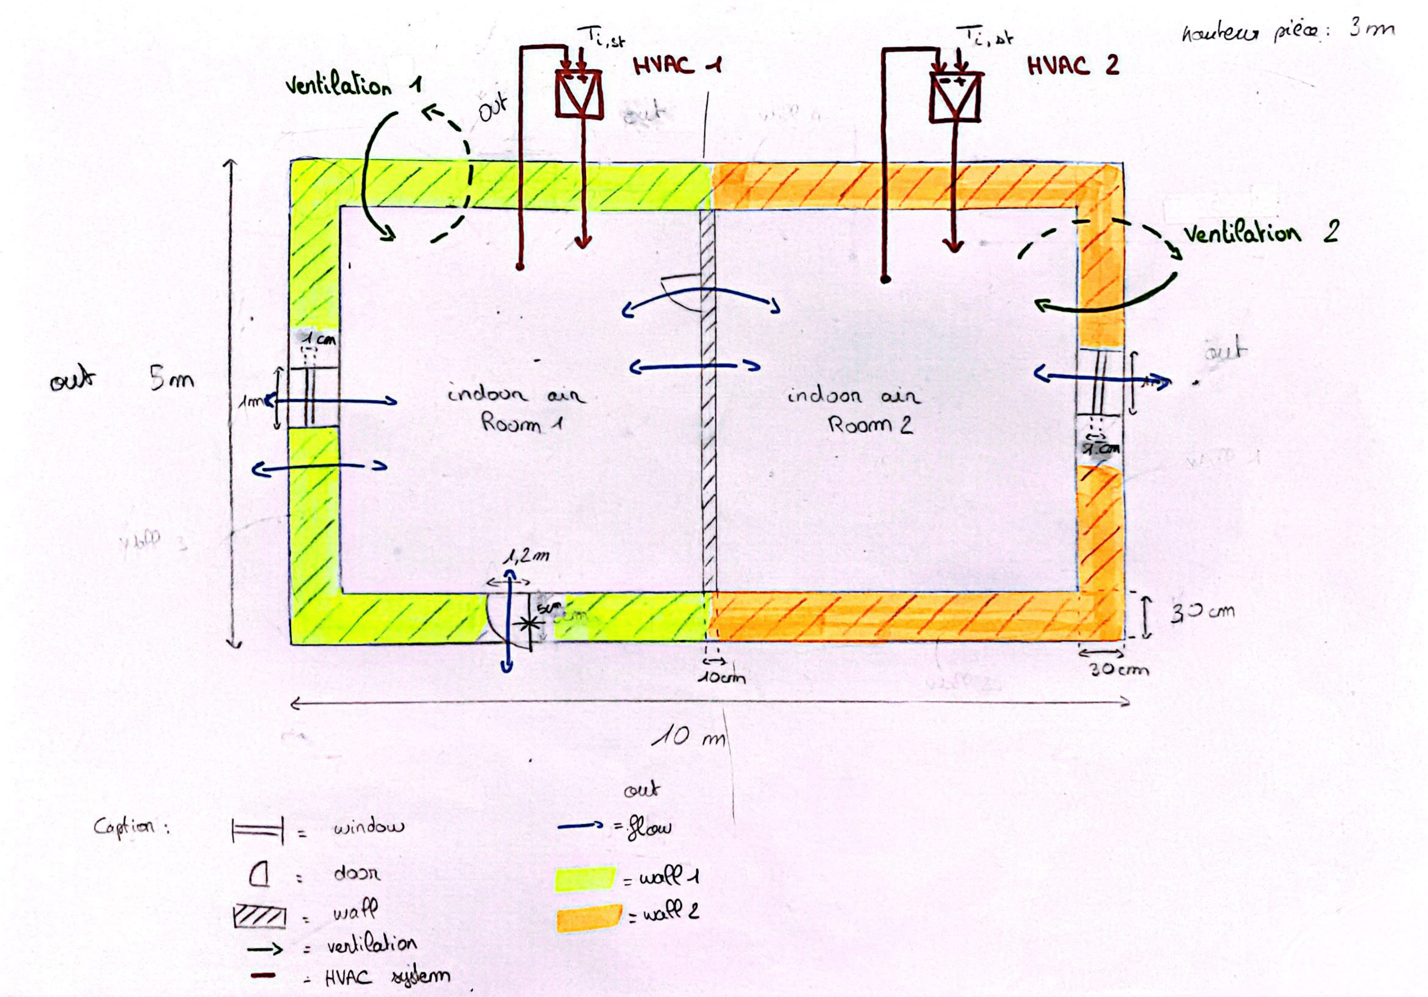 hauteur pièce: 3m
Ti,st
HVAC 1
Ti,st
HVAC 2
ventilation 1
out
- +
- +
ventilation 2
1 cm
out
out 5m
1m
indoor air
Room 1
indoor air
Room 2
1 cm
1,2m
5cm
30cm
10cm
30cm
10 m
out
Caption:
= window
= flow
= door
= wall 1
= wall
= wall 2
= ventilation
= HVAC system